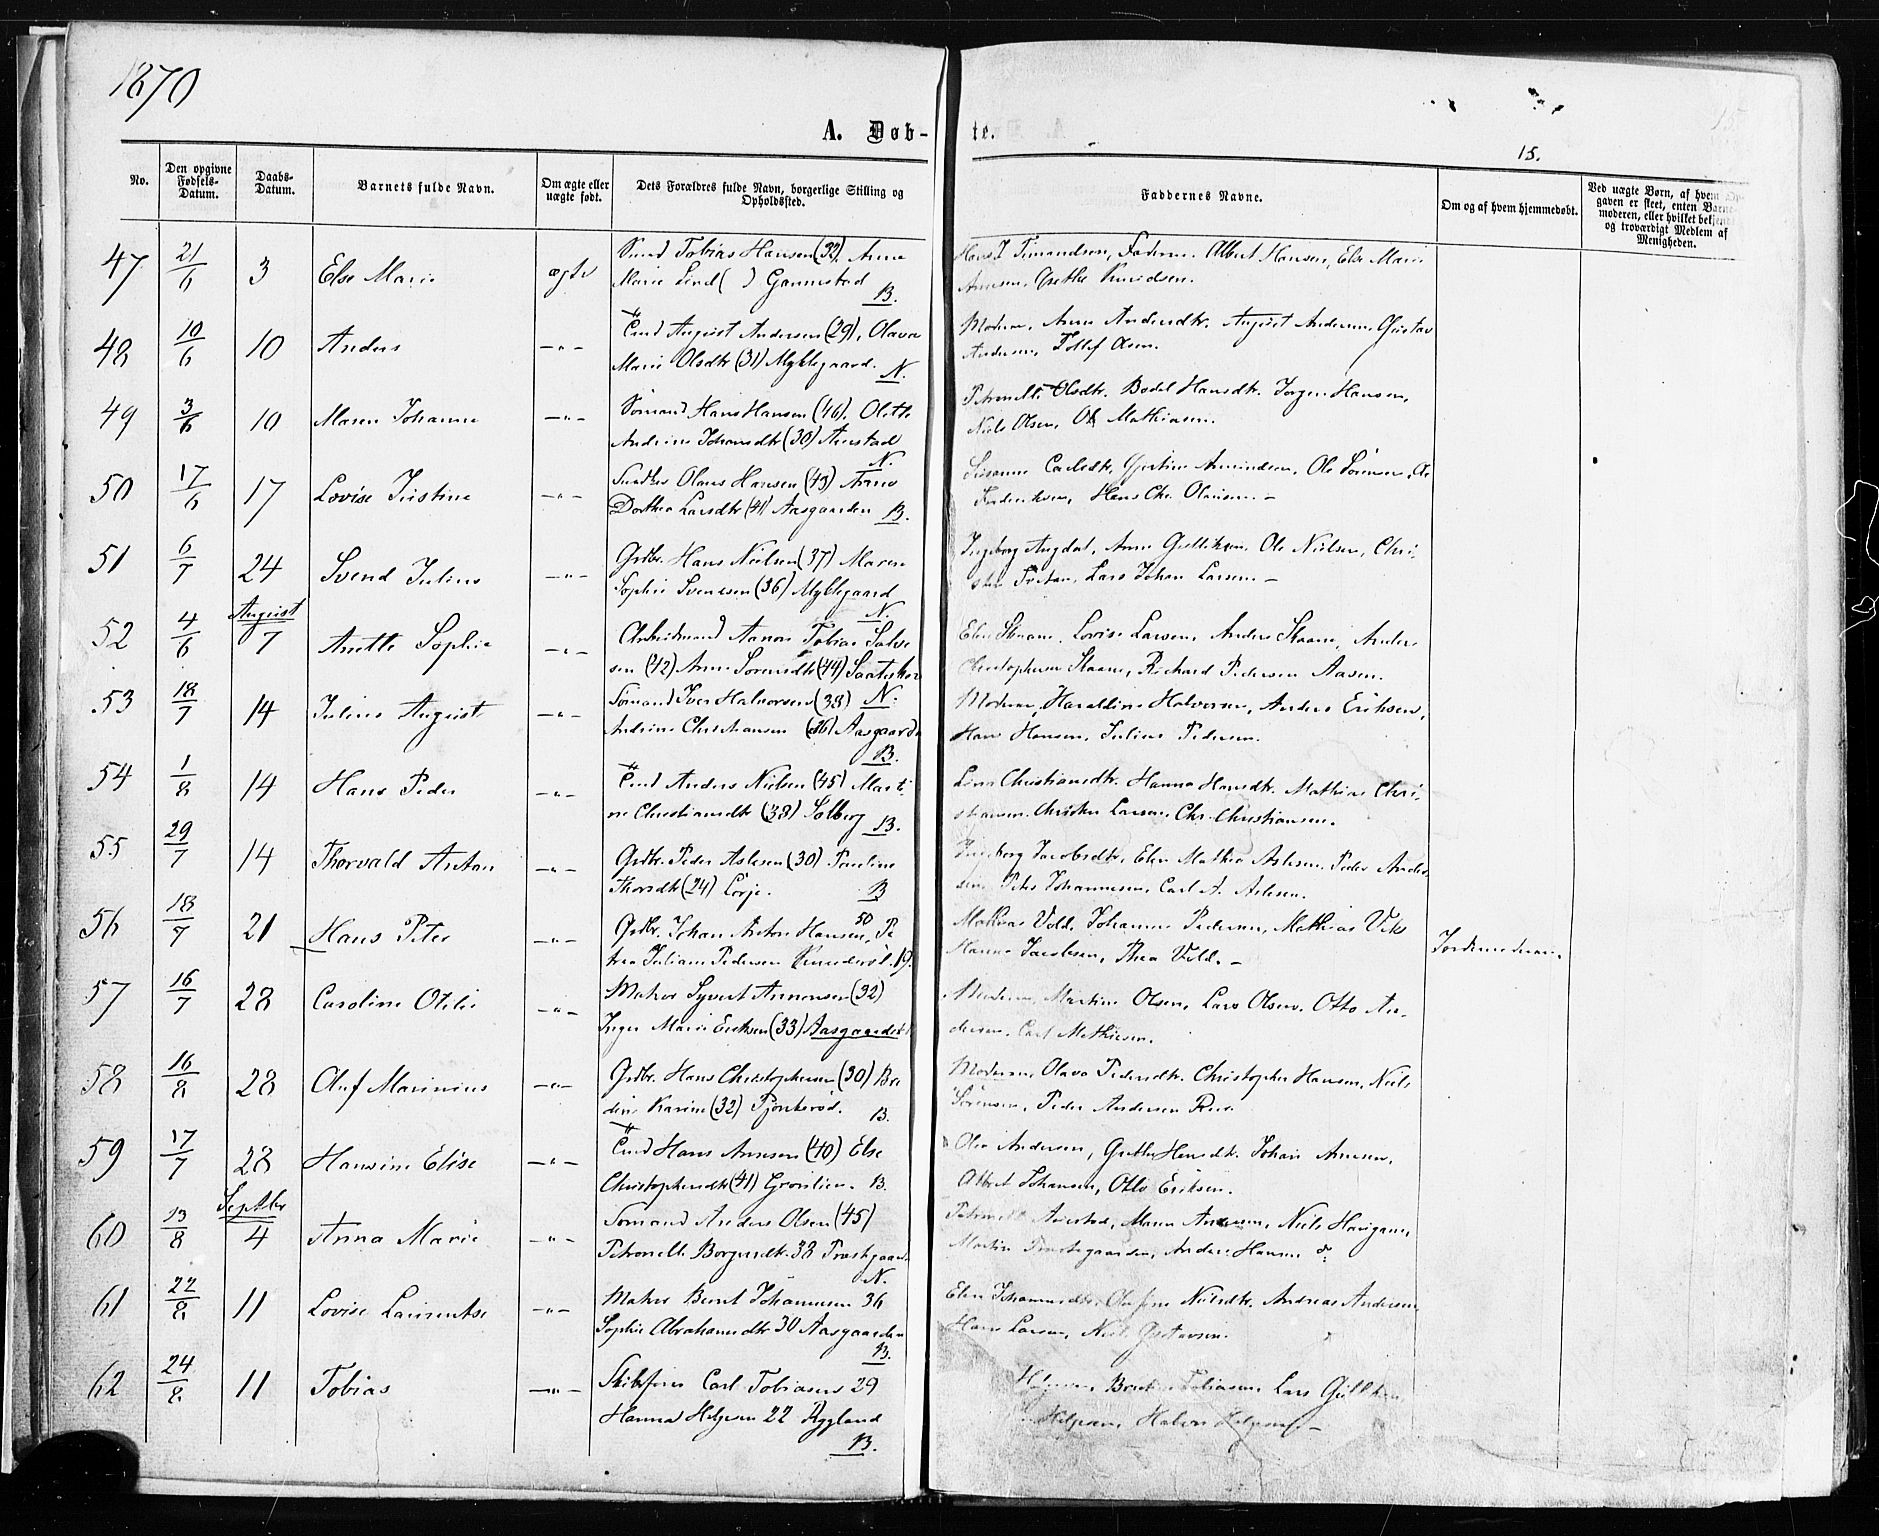 1870
15
A. Døb-
te.
15.
No.
Den opgivne Fødsels-Datum.
Daabs-Datum.
Barnets fulde Navn.
Om ægte eller uægte født.
Dets Forældres fulde Navn, borgerlige Stilling og Opholdssted.
Faddernes Navne.
Om og af hvem hjemmedøbt.
Ved uægte Børn, af hvem Op-
gaven er skeet, enten Barne-
moderen, eller hvilket bekjendt
og troværdigt Medlem af
Menigheden.
47 21/6 3 Else Marie ægte Tobias Hansen (32), Anne
Marie Lind ( ) Gannestad B.
Hans T Faderen. Albert Hansen, Else Marie
Grethe Knudsen.
48 10/6 10 Anders -"- August Andersen (29), Olava
Marie Olsdtr (31) Myklegaard. N.
Moderen, Anne Andersdtr. August Andersen, Gustav
Andersen, Tollef Olsen.
49 3/6 10 Maren Johanne -"- Sømand Hans Hansen (46). Olette
Andrine Johansdtr (30) N.
Petronelle Olsdtr. Bodel Hansdtr. Jørgen Hansen,
Niels Olsen, Ole Mathiasen.
50 17/6 17 Lovise Kristine -"- Olaus Hansen (43) Anne
Dorthea Larsdtr (41) Aasgaarden B.
Susanne Carlsdtr. Ole Sørensen,
Hans Chr. Olausen. -
51 6/7 24 Svend Julius -"- Grdbr. Hans Nielsen (37) Maren
Sophie Svendsen (36) Myklegaard N.
Ingeborg Augdal, Anne Gulliksen, Ole Nielsen, Chri-
Lars Johan Larsen -
August
52 4/6 7 Anette Sophie -"- Arbeidsmand Aanon Tobias Salve
sen (42) Anne Sørensdtr (44) N.
Elen Skaane, Lovise Larsen, Anders Skaane, Anders
Christophersen Skaane, Richard Pedersen Aasen.
53 18/7 14 Julius August -"- Sømand Iver Halvorsen (38)
Andrine Christiansen (26) Aasgaarden B.
Moderen, Haraldine Halvorsen, Anders Eriksen,
Hans Hansen, Julius Pedersen.
54 1/8 14 Hans Peder -"- Anders Nielsen (45) Marti-
ne Christiansdtr (38) Solberg B.
Lina Christiansdtr. Hanna Hansdtr. Mathias Chri-
stiansen. Christen Larsen, Chr. Christiansen.
55 29/7 14 Thorvald Anton -"- Grdbr. Peder Aslesen (30) Pauline
Thorsdtr (24) Lørje. B
Ingeborg Jacobsdtr, Elen Mathea Aslesen. Peder Ander-
sen Johannesen, Carl A. Aslesen.
56 18/7 21 Hans Peter -"- Grdbr. Johan Anton Hansen 50, Pe
tra Juliane Pedersen 19.
Mathias Vold. Johannes Pedersen, Mathias
Hanna Jacobsen, Thea Vold. -
Jordemoderen.
57 16/7 28 Caroline Otilie -"- Matros Syvert Annonsen (32)
Inger Marie Eriksen (33) Aasgaarden
Moderen, Martine Olsen, Lars Olsen. Otto An-
dersen. Carl Mathisen.
58 16/8 28 Oluf Marinius -"- Grdbr. Hans Christophersen (30) Bre
dine Karine (32) B.
Moderen, Olava Pedersdtr. Christopher Hansen, Niels
Sørensen, Peder Andersen
59 17/7 28 Hansine Elise -"- Hans Annesen (40) Else
Christophersdtr (41) Grønlien. B.
Andersen, Grethe Hansdtr. Johan Annesen,
Albert Johansen, Otto Eriksen.
Septbr
60 13/8 4 Anna Marie -"- Sømand Anders Olsen (45)
Petronelle Børgersdtr. 38 Præstgaard N.
Petronelle Maren Andersen, Niels
Martin Præstegaarden, Anders Hansen
61 22/8 11 Lovise Laurentse -"- Matros Bernt Johannesen 36
Sophie Abrahamsdtr 30 Aasgaarden B.
Elen Johannesdtr. Nielsdtr. Andreas Andersen,
Hans Larsen, Niels Gustavsen.
62 24/8 11 Tobias -"- Skibsfører Carl Tobiasen 29
Hanna Helgesen 22 Rygland B.
Tobiasen, Lars Gulliksen
Helgesen, Halvor Helgesen -